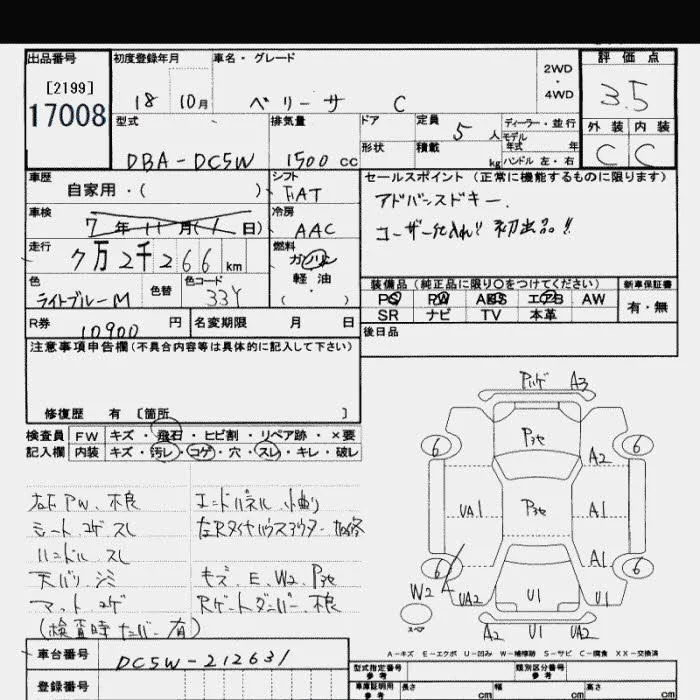 出品番号
[2199]
17008
初度登録年月
18 10月
車名・グレード
ベリーサ C
2WD
・
4WD
評価点
3.5
外装 内装
C C
型式
DBA-DC5W
排気量
1500 cc
ドア
形状
定員
5 人
積載
kg
ディーラー・並行
モデル
年式 年
ハンドル 左・右
車歴
自家用・( )
シフト
FAT
車検
7年11月(1日)
冷房
AAC
走行
7万2千266 km
燃料
ガソリン
軽油
( ・ )
色
ライトブルーM
色替
色コード
33Y
R券
10900 円
名変期限 月 日
セールスポイント(正常に機能するものに限ります)
アドバンスドキー.
ユーザー仕入れ!! 初出品!!
装備品(純正品に限り○をつけてください)
PS PW ABS エアB AW
SR ナビ TV 本革
新車保証書
有・無
後日品
注意事項申告欄(不具合内容等は具体的に記入して下さい)
修復歴 有 〔箇所 〕
検査員
記入欄
FW キズ・飛石・ヒビ割・リペア跡・×要
内装 キズ・汚レ・コゲ・穴・スレ・キレ・破レ
PW. 不良
シート コゲ スレ
ハンドル スレ
天バリ シミ
マット コゲ
(検査時ナンバー有)
エンドパネル 小曲り
左Rタイヤハウスアウター 加修
キズ E. W2. P3セ
Rゲートダンパー 不良
Pハゲ A3
P3セ
6 6
A2
UA1 P3セ A1
A1
6 6
W2 A UA2 U1 UA2
スペア
A2 U1 UA2
A-キズ E-エクボ U-凹み W-補修跡 S-サビ C-腐食 XX-交換済
車台番号
DC5W-212631
登録番号
型式指定番号
参考
類別区分番号
参考
車庫証明用
参考
長さ cm
幅 cm
高さ cm